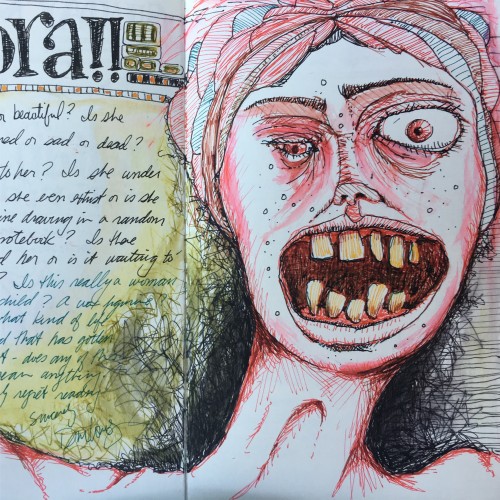 ora!!
r beautiful? Is she
ned or sad or dead?
to her? Is she under
she even exist or is she
ine drawing in a random
notebook? Is thae
d her or is it waiting to
? Is this really a woman
child? A
hat kind of life
d that has gotten
- does any of
mean anything
y regret reading
Sincerely